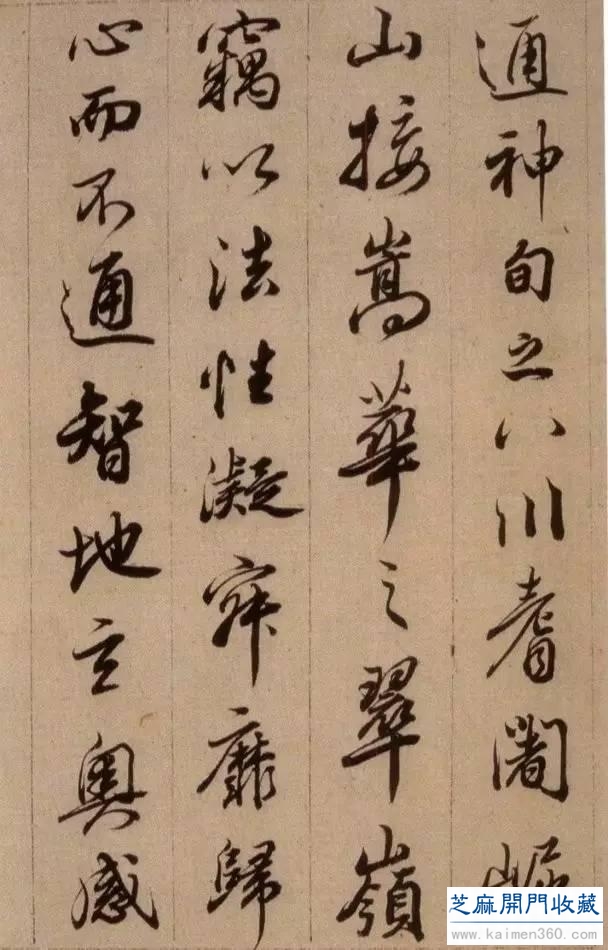 通神甸之八川耆闍崛
山接嵩華之翠嶺
竊以法性凝寂靡歸
心而不通智地玄奧感
芝麻開門收藏
www.kaimen360.com